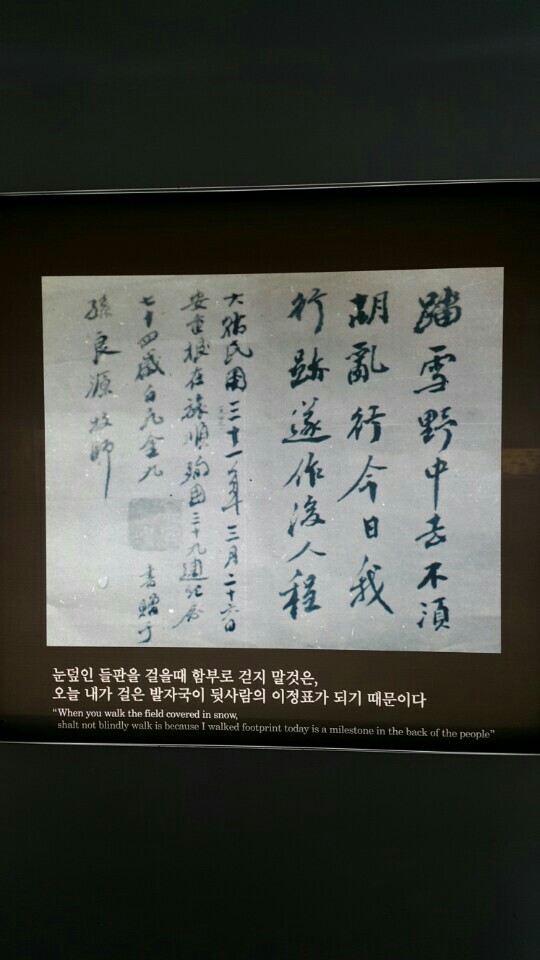 踏雪野中去不須
胡亂行今日我
行跡遂作後人程
大韓民國三十一年三月二十六日
安重根在旅順殉國三十九週紀念
七十四歲白凡金九 書贈于
孫良源牧師
눈덮인 들판을 걸을때 함부로 걷지 말것은,
오늘 내가 걸은 발자국이 뒷사람의 이정표가 되기 때문이다
“When you walk the field covered in snow,
shalt not blindly walk is because I walked footprint today is a milestone in the back of the people”